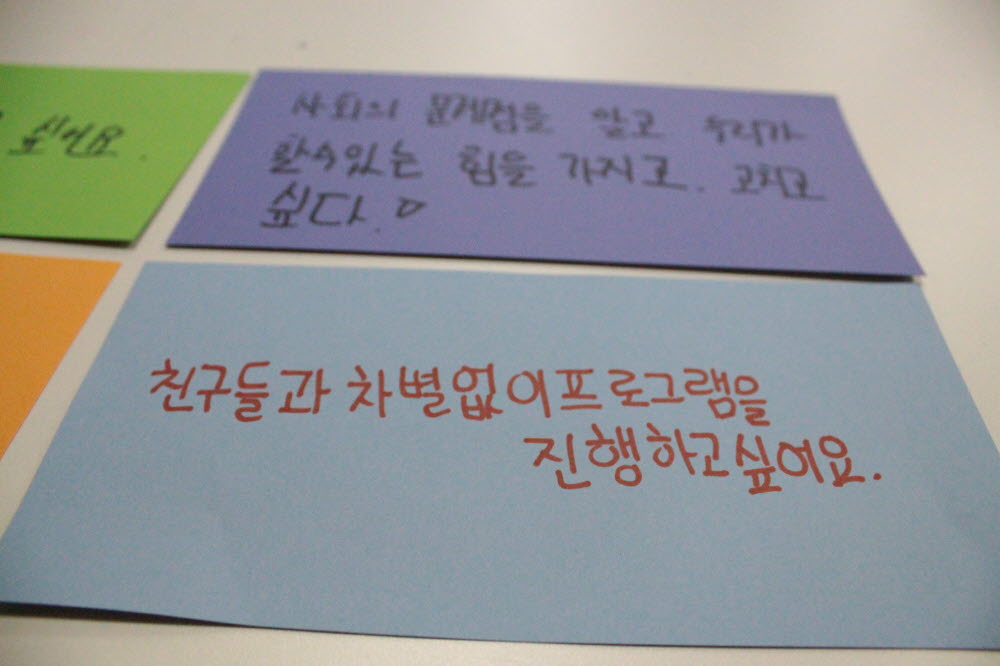 싶어요.
사회의 문제점을 알고 우리가
할수있는 힘을 가지고. 고치고
싶다.♡
친구들과 차별없이프로그램을
진행하고싶어요.